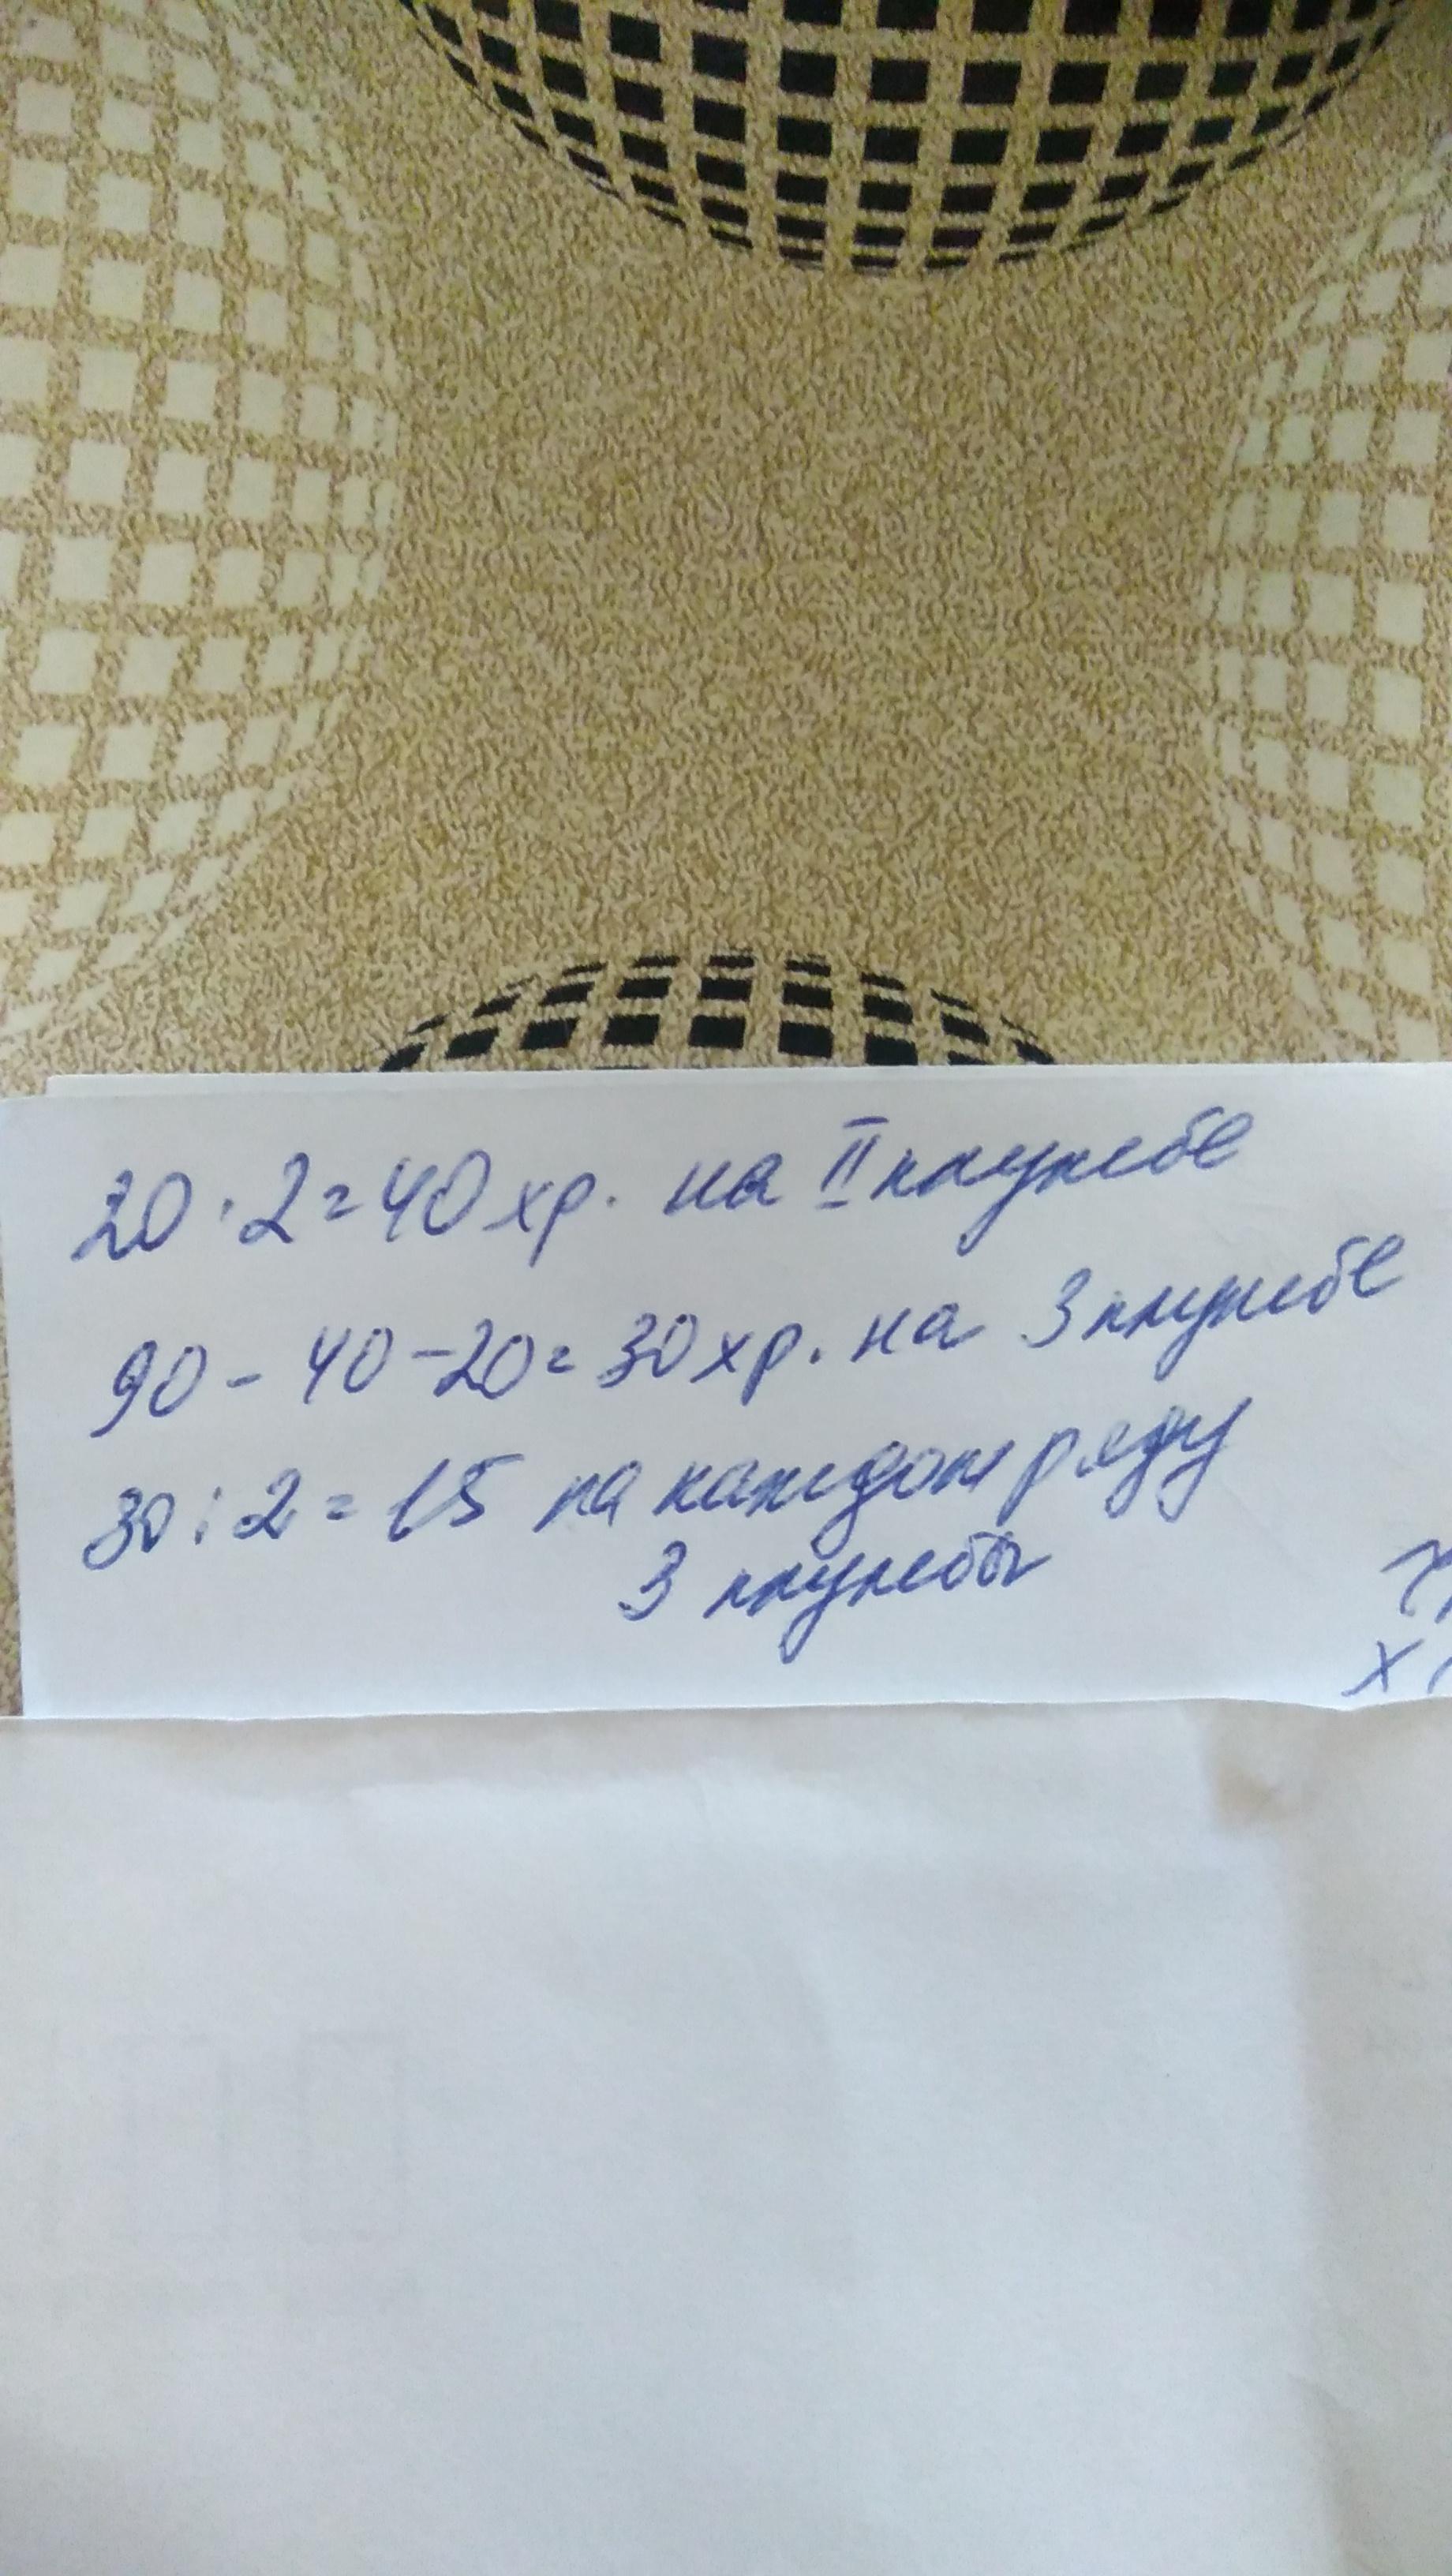 20·2=40 хр. на II клумбе
90-40-20=30 хр. на 3 клумбе
30:2=15 на каждом ряду
3 клумбы
х